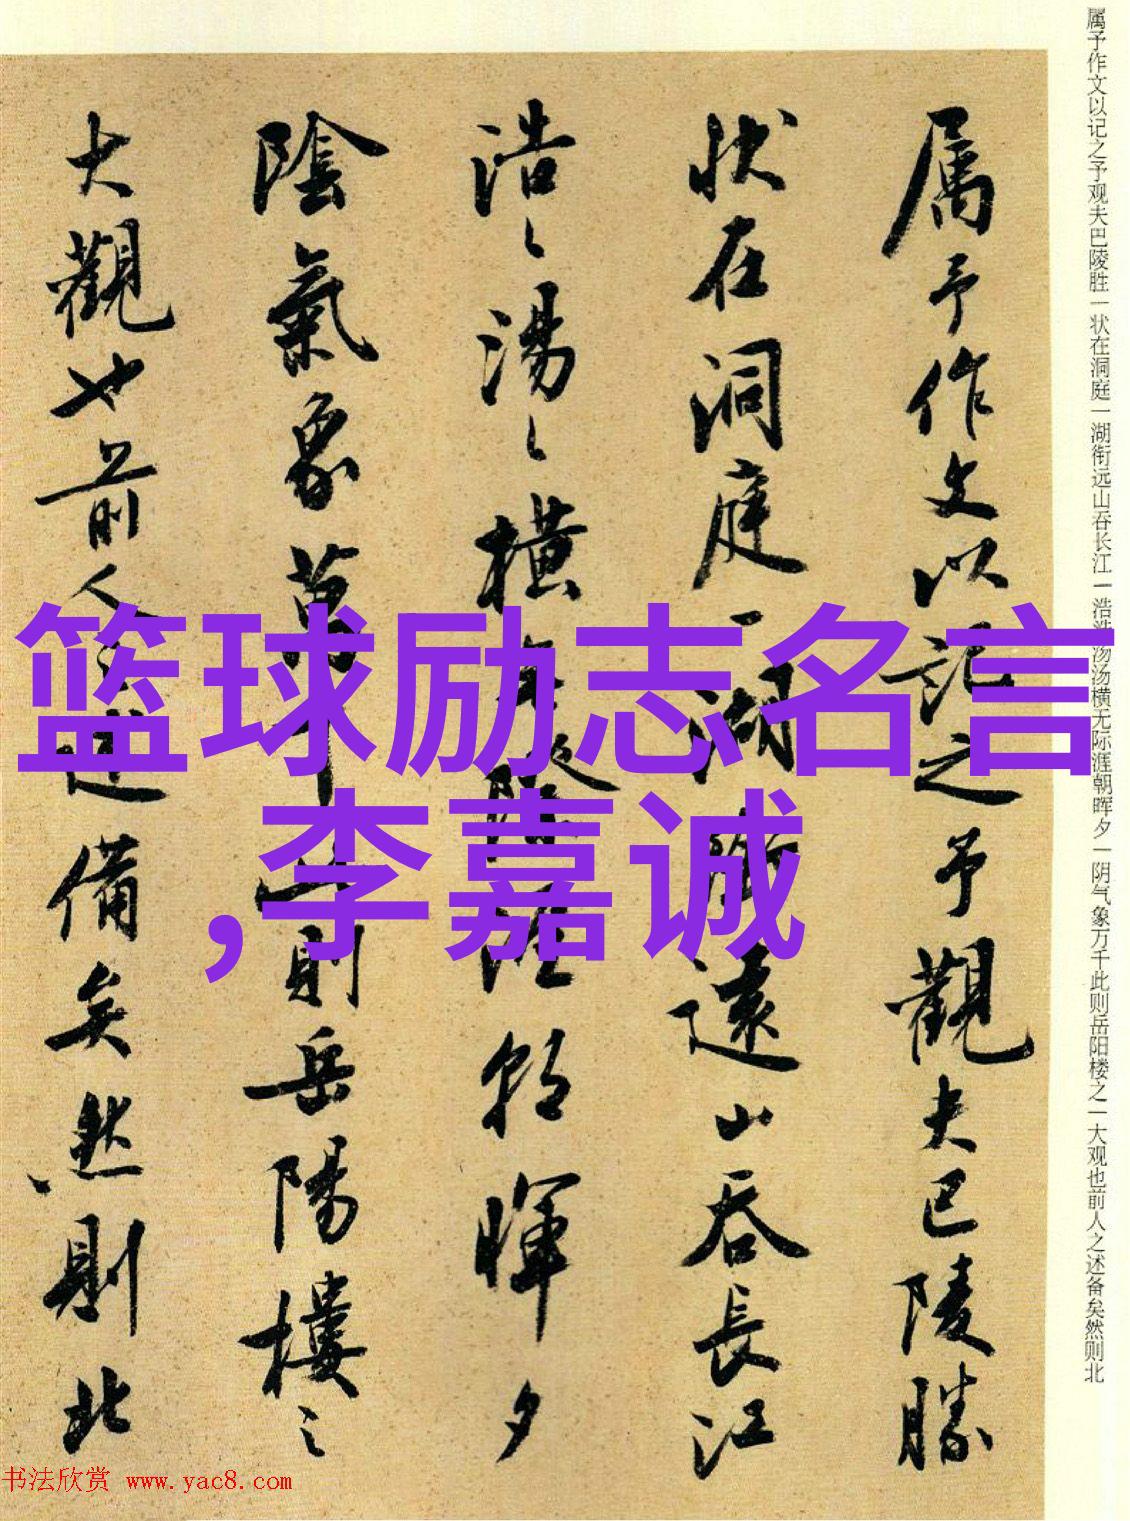 属予作文以记之予观夫巴陵胜一状在洞庭一湖衔远山吞长江一浩浩汤汤横无际涯朝晖夕一阴气象万千此则岳阳楼之一大观也前人之述备矣然则北
属予作文以記之予觀夫巴陵勝
状在洞庭一湖銜遠山吞長江
浩〻湯〻横無際涯朝暉夕
陰氣象萬千此則岳陽樓之
大觀也前人之述備矣然則北
篮球励志名言
,李嘉诚
书法欣赏 www.yac8.com